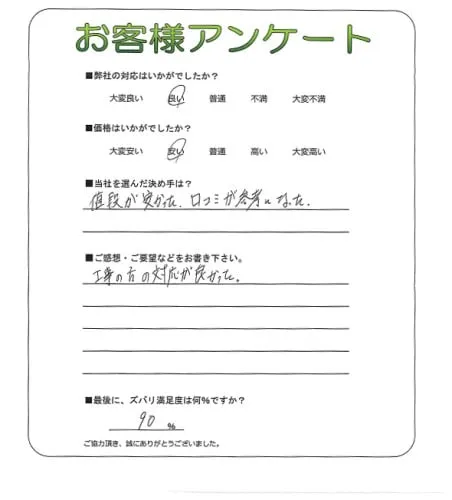 お客様アンケート
■弊社の対応はいかがでしたか?
大変良い 良い 普通 不満 大変不満
■価格はいかがでしたか?
大変安い 安い 普通 高い 大変高い
■当社を選んだ決め手は?
値段が安かった、口コミが参考になった。
■ご感想・ご要望などをお書き下さい。
工事の方の対応が良かった。
■最後に、ズバリ満足度は何%ですか?
90 %
ご協力頂き、誠にありがとうございました。